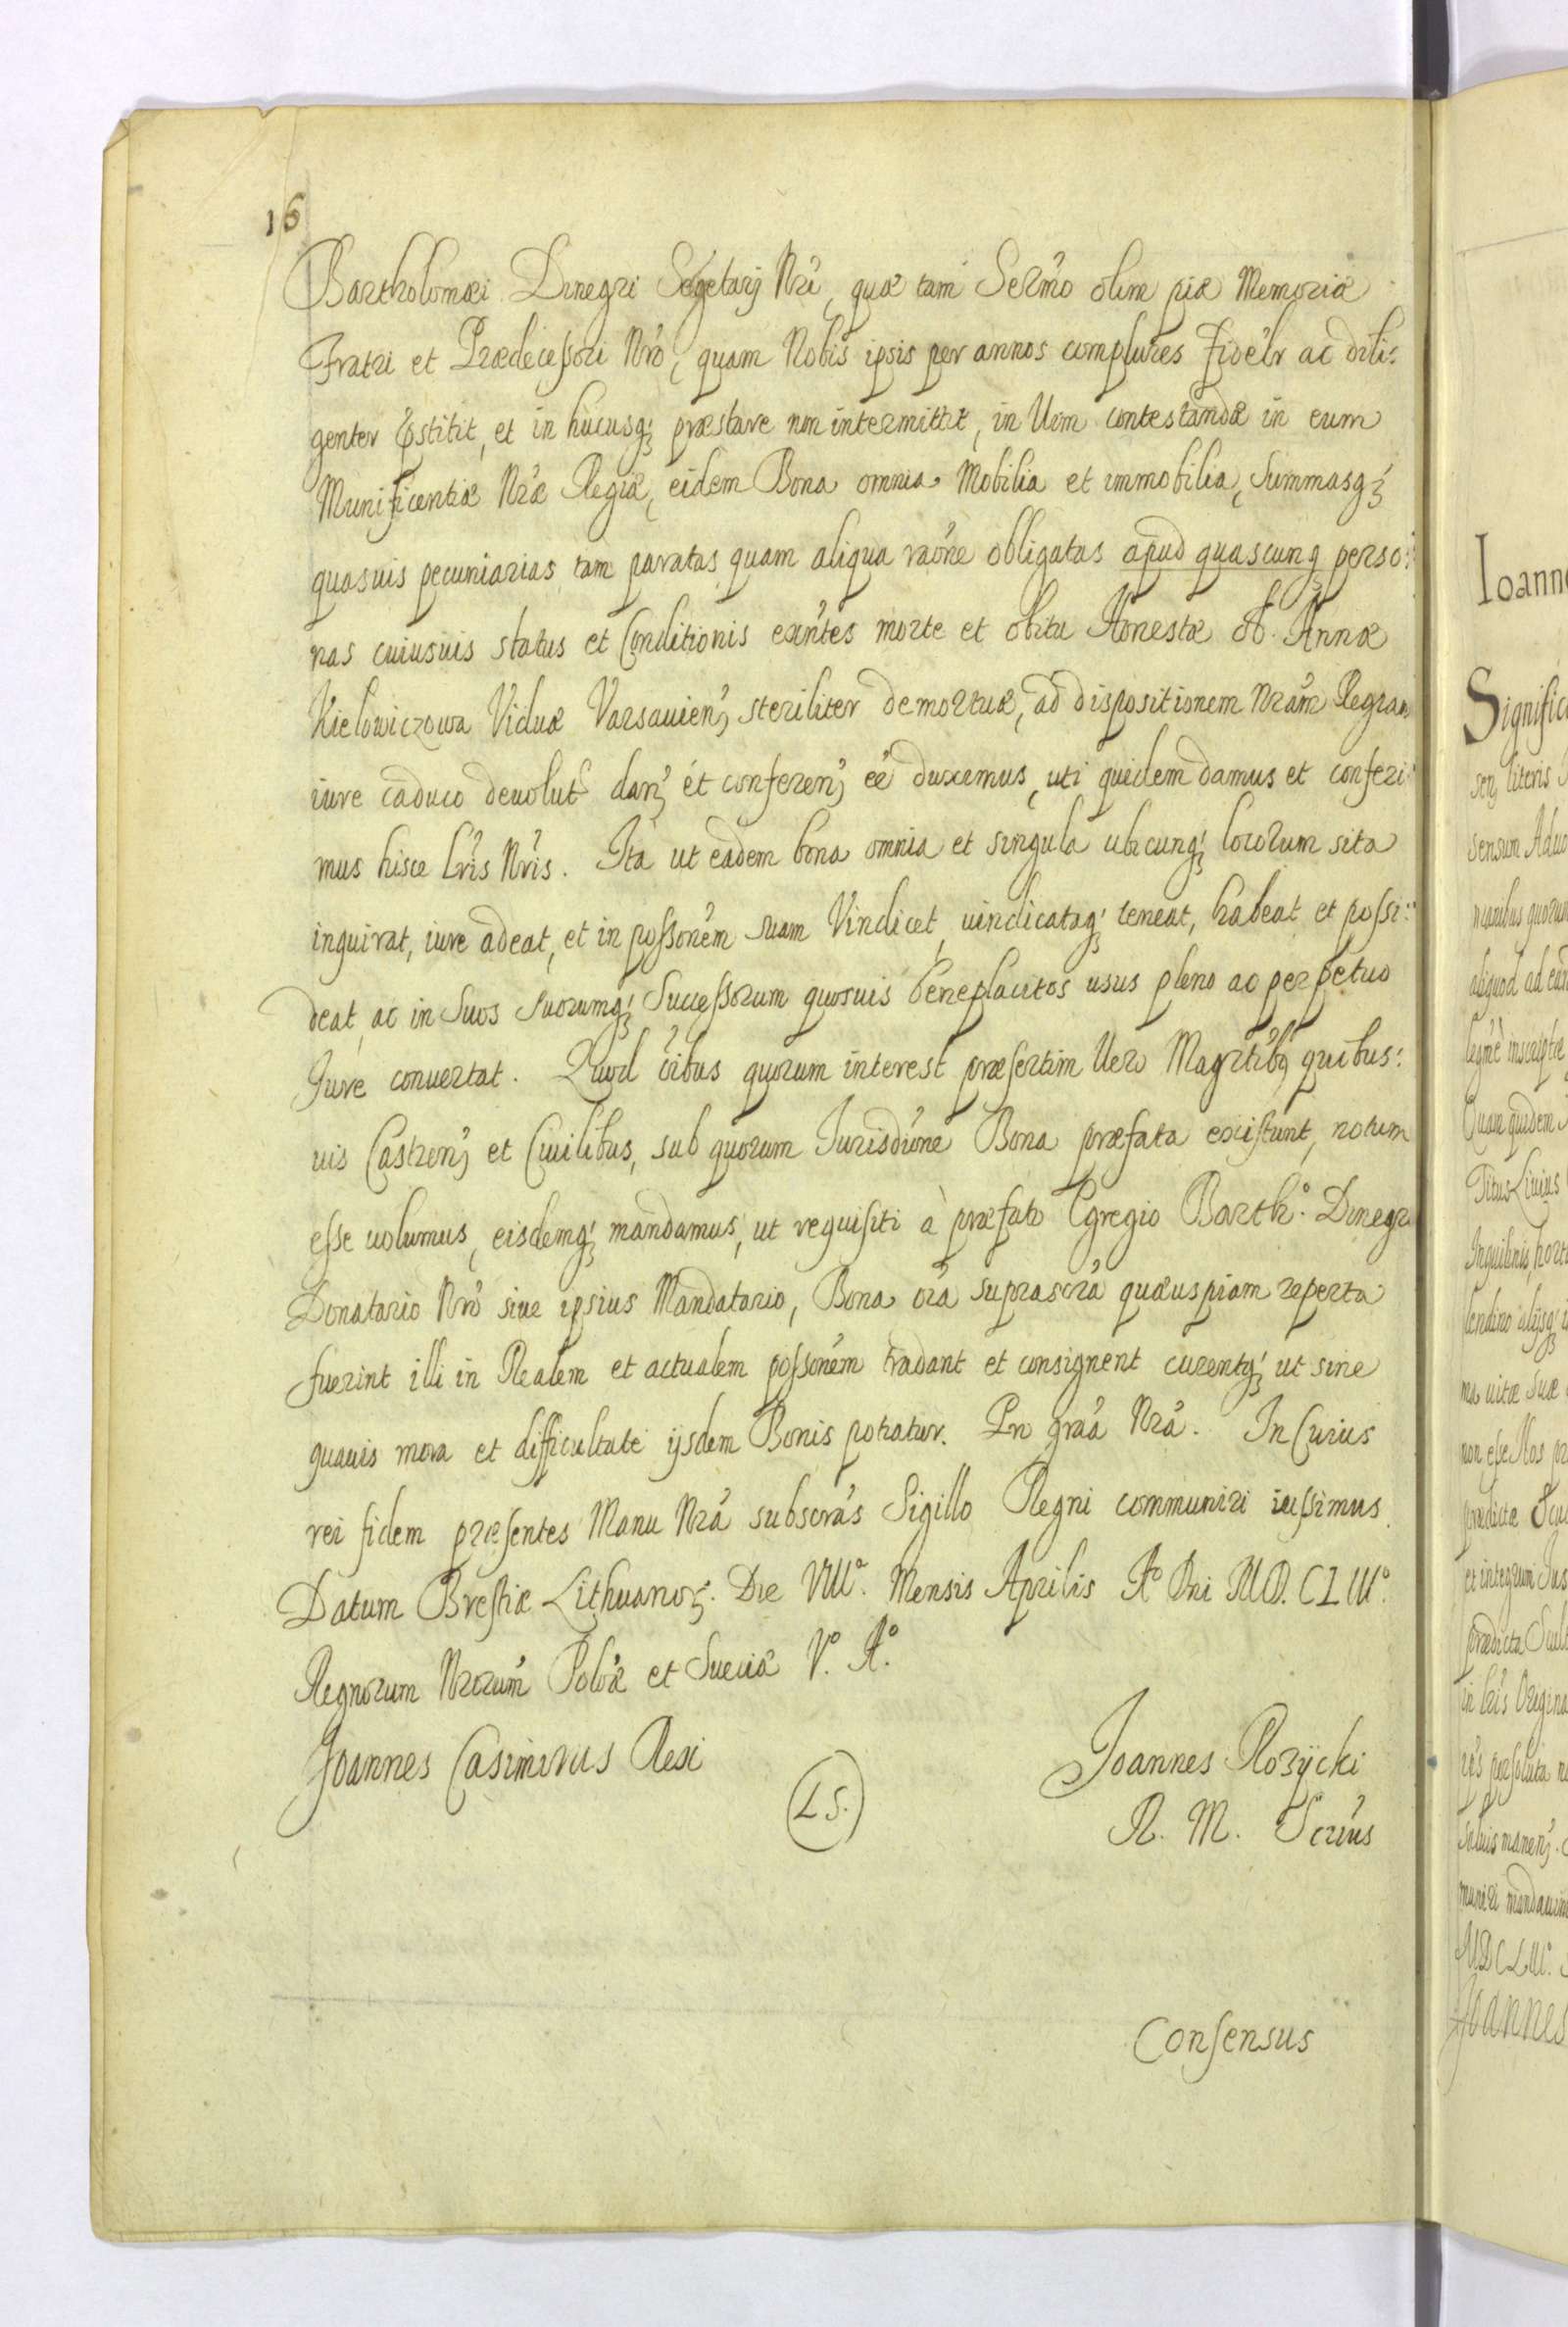 16
Bartholomæi Dinegri Segetarij Nri, quæ tam Sermo olim piæ Memoriæ
Fratri et Prædecessori Nro, quam Nobis ipsis per annos complures fidelr ac dili:
genter pstitit, et in hucusq; præstare non intermittit, in Vim contestandæ in eum
Munificentiæ Nræ Regiæ, eidem Bona omnia Mobilia et immobilia, Summasq;
quasuis pecuniarias tam paratas quam aliqua raone obligatas apud quascunq perso:
nas cuiusuis status et Conditionis exntes morte et obitu Honestæ ol. Annæ
Kielowiczowa Viduæ Varsauien; steriliter demortuæ, ad dispositionem Nram Regiam
iure caduco deuolut dan; et conferen; eé duxemus, uti quidem damus et conferi
mus hisce Lris Nris. Ita ut eadem bona omnia et singula ubicunq; locorum sita
inquirat, iure adeat, et in possonem suam Vindicet, uindicataq; teneat, habeat et possi:
deat, ac in suos suorumq; Successorum quosuis beneplacitos usus pleno ac perpetuo
Jure conuertat. Quod oibus quorum interest præsertim Vero Magrtibq quibus:
uis Castren; et Ciuilibus, sub quorum Jurisdione Bona præfata existunt, notum
esse uolumus, eisdemq; mandamus, ut requisiti à præfato Egregio Barth.° Dinegr
Donatario Nro siue ipsius Mandatario, Bona oia suprascra quæuspiam reperta
fuerint illi in Realem et actualem possonem tradant et consignent curentq; ut sine
quauis mora et difficultate ijsdem Bonis potiatur. Pro graa Nra. In Cuius
rei fidem præsentes Manu Nra subscras Sigillo Regni communiri iussimus.
Datum Brestiæ Lithuanor. Die VIII°. Mensis Aprilis A° Dni M.D.CLIII°.
Regnorum Nrorum Polæ et Sueciæ V°. A°.
Joannes Casimirus Rexi
(L.S.)
Joannes Rozÿcki
R. M. Scrius
Consensus
Ioann
Signific
sen; literis
sensum Aduo
aliquod ad ean
Quam quidem
Titus Liuius
ma uitæ suæ
non esse Nos pr
et integrum Jus
in Lris Origina
MDCLIII°.
Joannes